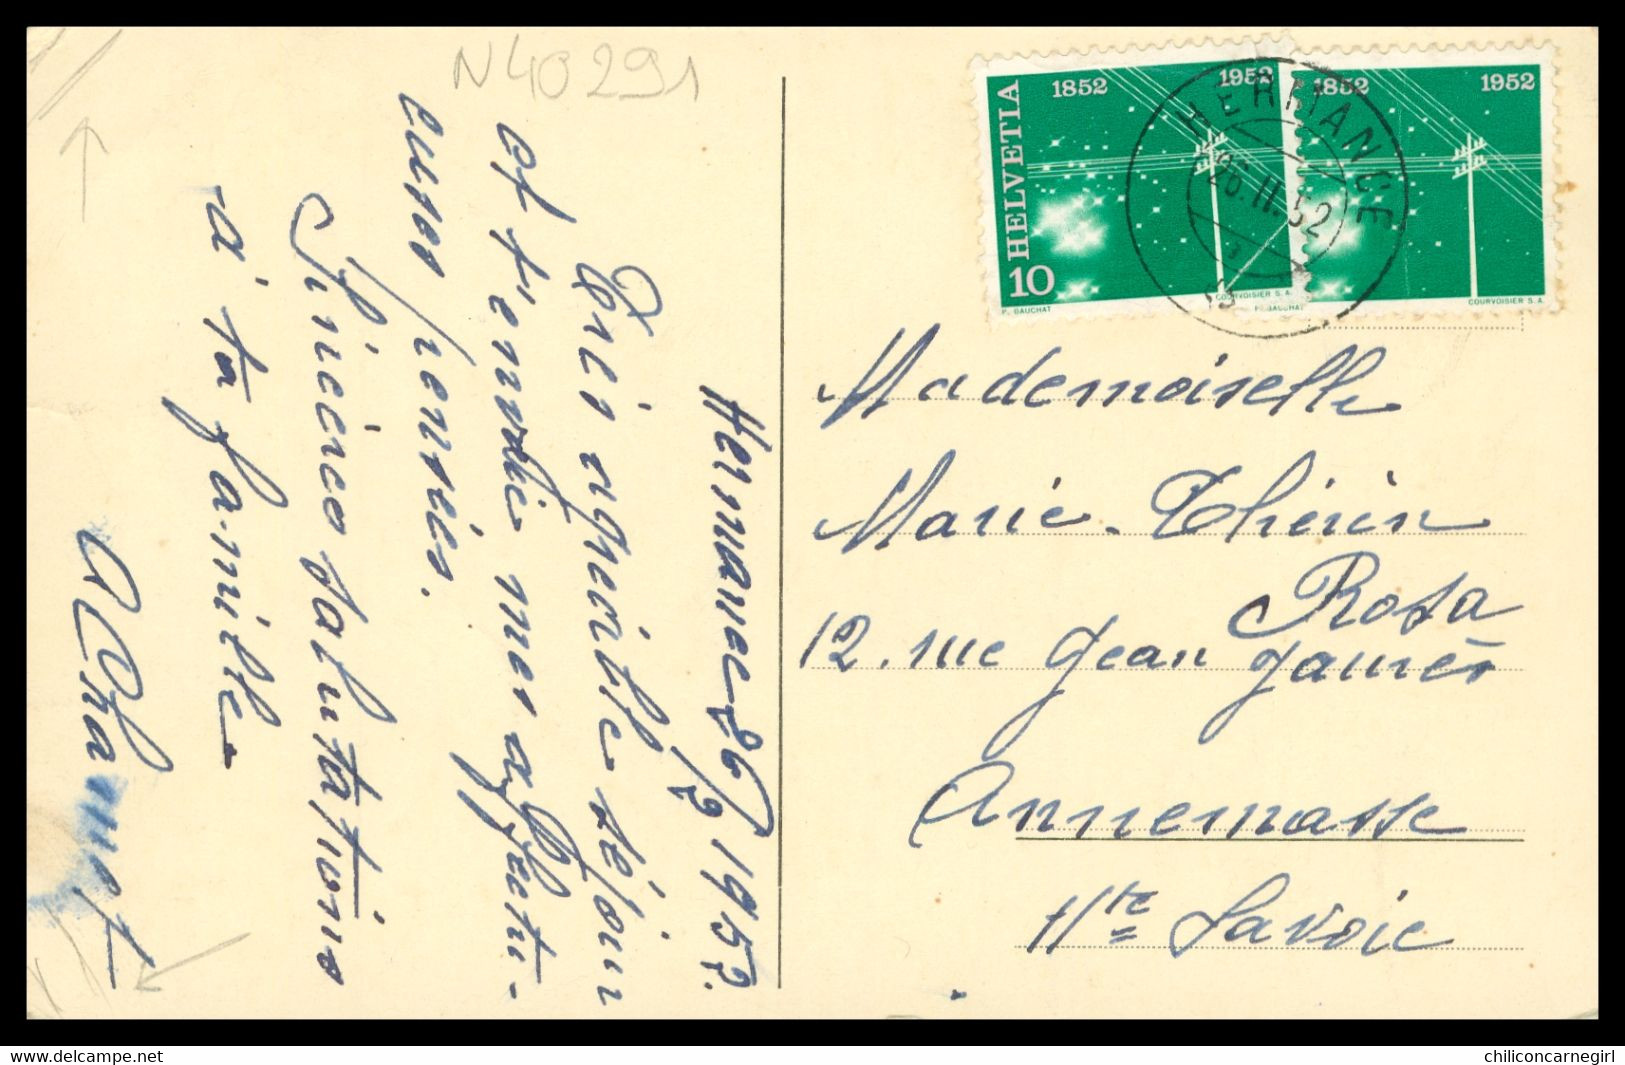 N40291
Hermance 26/2 1952.
Très agréable séjour
et t'envoie mes affectu-
euses pensées.
Sincères salutations
à ta famille.
HELVETIA
1852
1952
10
P. GAUCHAT
COURVOISIER S.A.
1852
1952
P. GAUCHAT
COURVOISIER S.A.
HERMANCE
26.II.52
Mademoiselle
Marie-Thérèse
Rosa
12, rue Jean Jaurès
Annemasse
Hte Savoie
chiliconcarnegirl